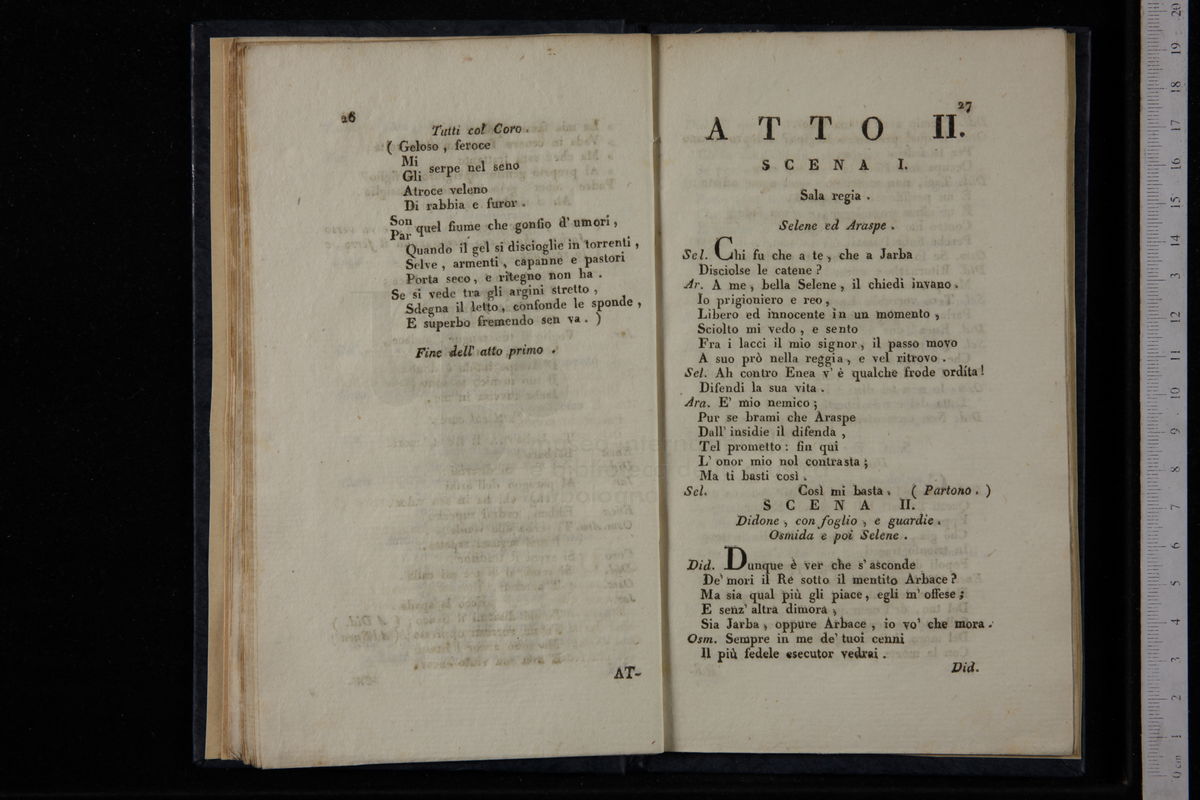 26
Tutti col Coro.
( Geloso, feroce
Mi
Gli serpe nel seno
Atroce veleno
Di rabbia e furor.
Son
Par quel fiume che gonfio d' umori,
Quando il gel si discioglie in torrenti,
Selve, armenti, capanne e pastori
Porta seco, e ritegno non ha.
Se si vede tra gli argini stretto,
Sdegna il letto, confonde le sponde,
E superbo fremendo sen va. )
Fine dell' atto primo.
AT-
27
ATTO II.
SCENA I.
Sala regia.
Selene ed Araspe.
Sel. Chi fu che a te, che a Jarba
Disciolse le catene?
Ar. A me, bella Selene, il chiedi invano.
Io prigioniero e reo,
Libero ed innocente in un momento,
Sciolto mi vedo, e sento
Fra i lacci il mio signor, il passo movo
A suo prò nella reggia, e vel ritrovo.
Sel. Ah contro Enea v' è qualche frode ordita!
Difendi la sua vita.
Ara. E' mio nemico;
Pur se brami che Araspe
Dall' insidie il difenda,
Tel prometto: fin qui
L' onor mio nol contrasta;
Ma ti basti così.
Sel. Così mi basta. ( Partono. )
SCENA II.
Didone, con foglio, e guardie.
Osmida e poi Selene.
Did. Dunque è ver che s' asconde
De' mori il Re sotto il mentito Arbace?
Ma sia qual più gli piace, egli m' offese;
E senz' altra dimora,
Sia Jarba, oppure Arbace, io vo' che mora.
Osm. Sempre in me de' tuoi cenni
Il più fedele esecutor vedrai.
Did.